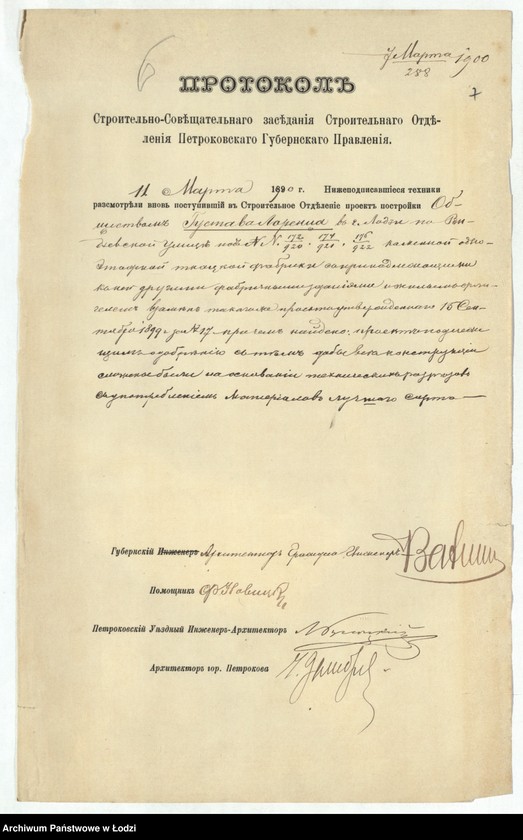 7 Марта 1900
258
6
7
ПРОТОКОЛЪ
Строительно-Совѣщательнаго засѣданія Строительнаго Отдѣ-
ленія Петроковскаго Губернскаго Правленія.
11 Марта 1890 г. Нижеподписавшіеся техники
разсмотрѣли вновь поступившій въ Строительное Отдѣленіе проектъ постройки Об-
ществомъ Густава Лоренца въ г. Лодзи по Ви-
дзевской улицѣ подъ №№ 172/920, 174/921, 176/922 каменной одно-
этажной ткацкой фабрики
другими фабричными зданіями
15 Сен-
тября 1899 г. за № 17 причемъ найдено: проектъ подлежа-
щимъ одобренію съ тѣмъ, дабы вся конструкція
на основаніи техническихъ разсчетовъ
съ употребленіемъ матеріаловъ лучшаго сорта
Губернскій Инженеръ Архитекторъ Гражд. Инженеръ
Помощникъ Ф Новицкій
Петроковскій Уѣздный Инженеръ-Архитекторъ
Архитекторъ гор. Петрокова
Archiwum Państwowe w Łodzi